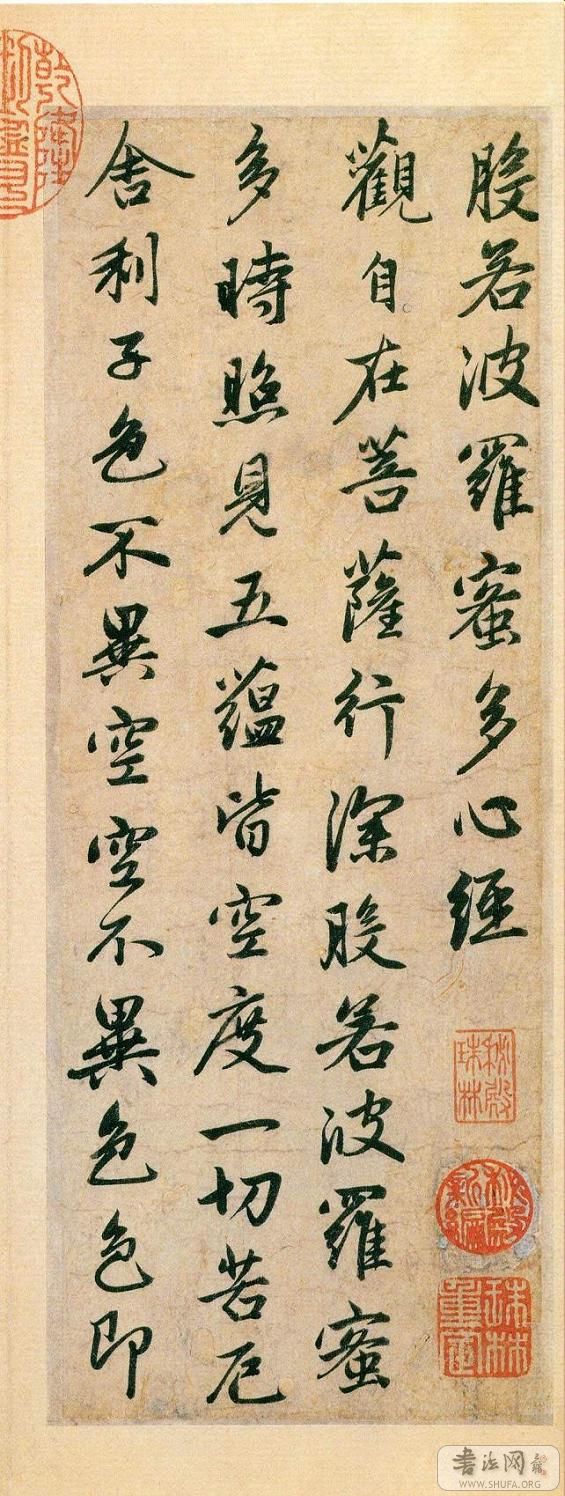 般若波羅蜜多心經
秘殿珠林
秘殿新編
珠林重定
觀自在菩薩行深般若波羅蜜
多時照見五蘊皆空度一切苦厄
舍利子色不異空空不異色色即
乾隆
書法网
WWW.SHUFA.ORG